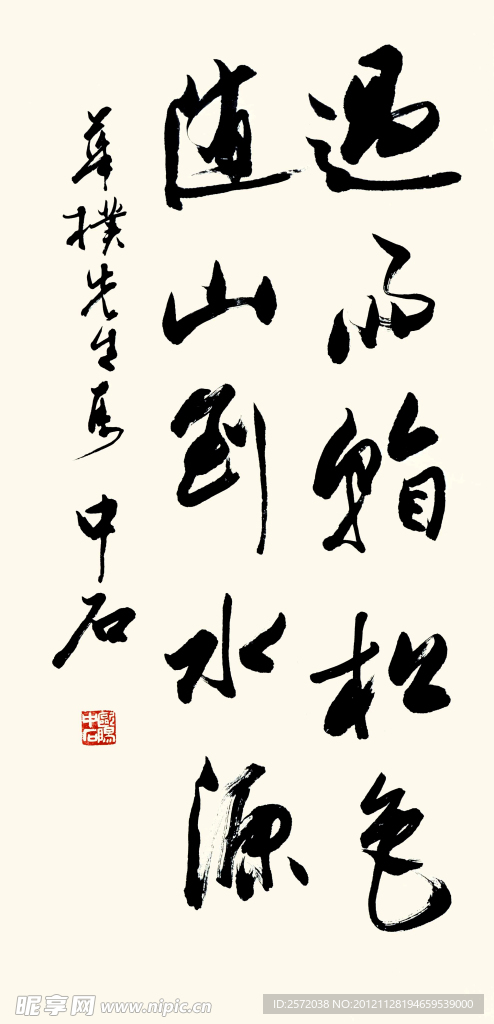 過雨看松色
随山到水源
華樸先生属 中石
歐陽中石
昵享网 www.nipic.cn
ID:2572038 NO:20121128194659539000